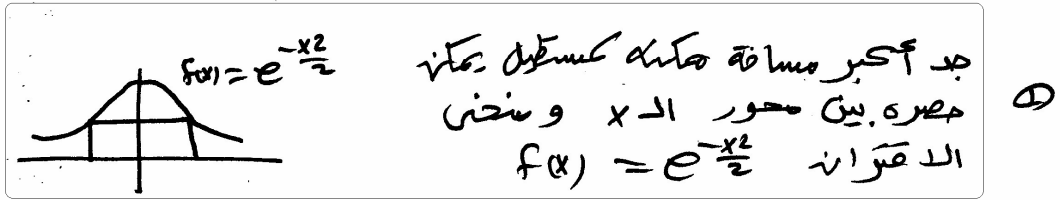 جد أكبر مساحة ممكنة لمستطيل يمكن
حصره بين محور الـ x ومنحنى
الاقتران f(x) = e^{-x²/2}
①
f(x) = e^{-x²/2}